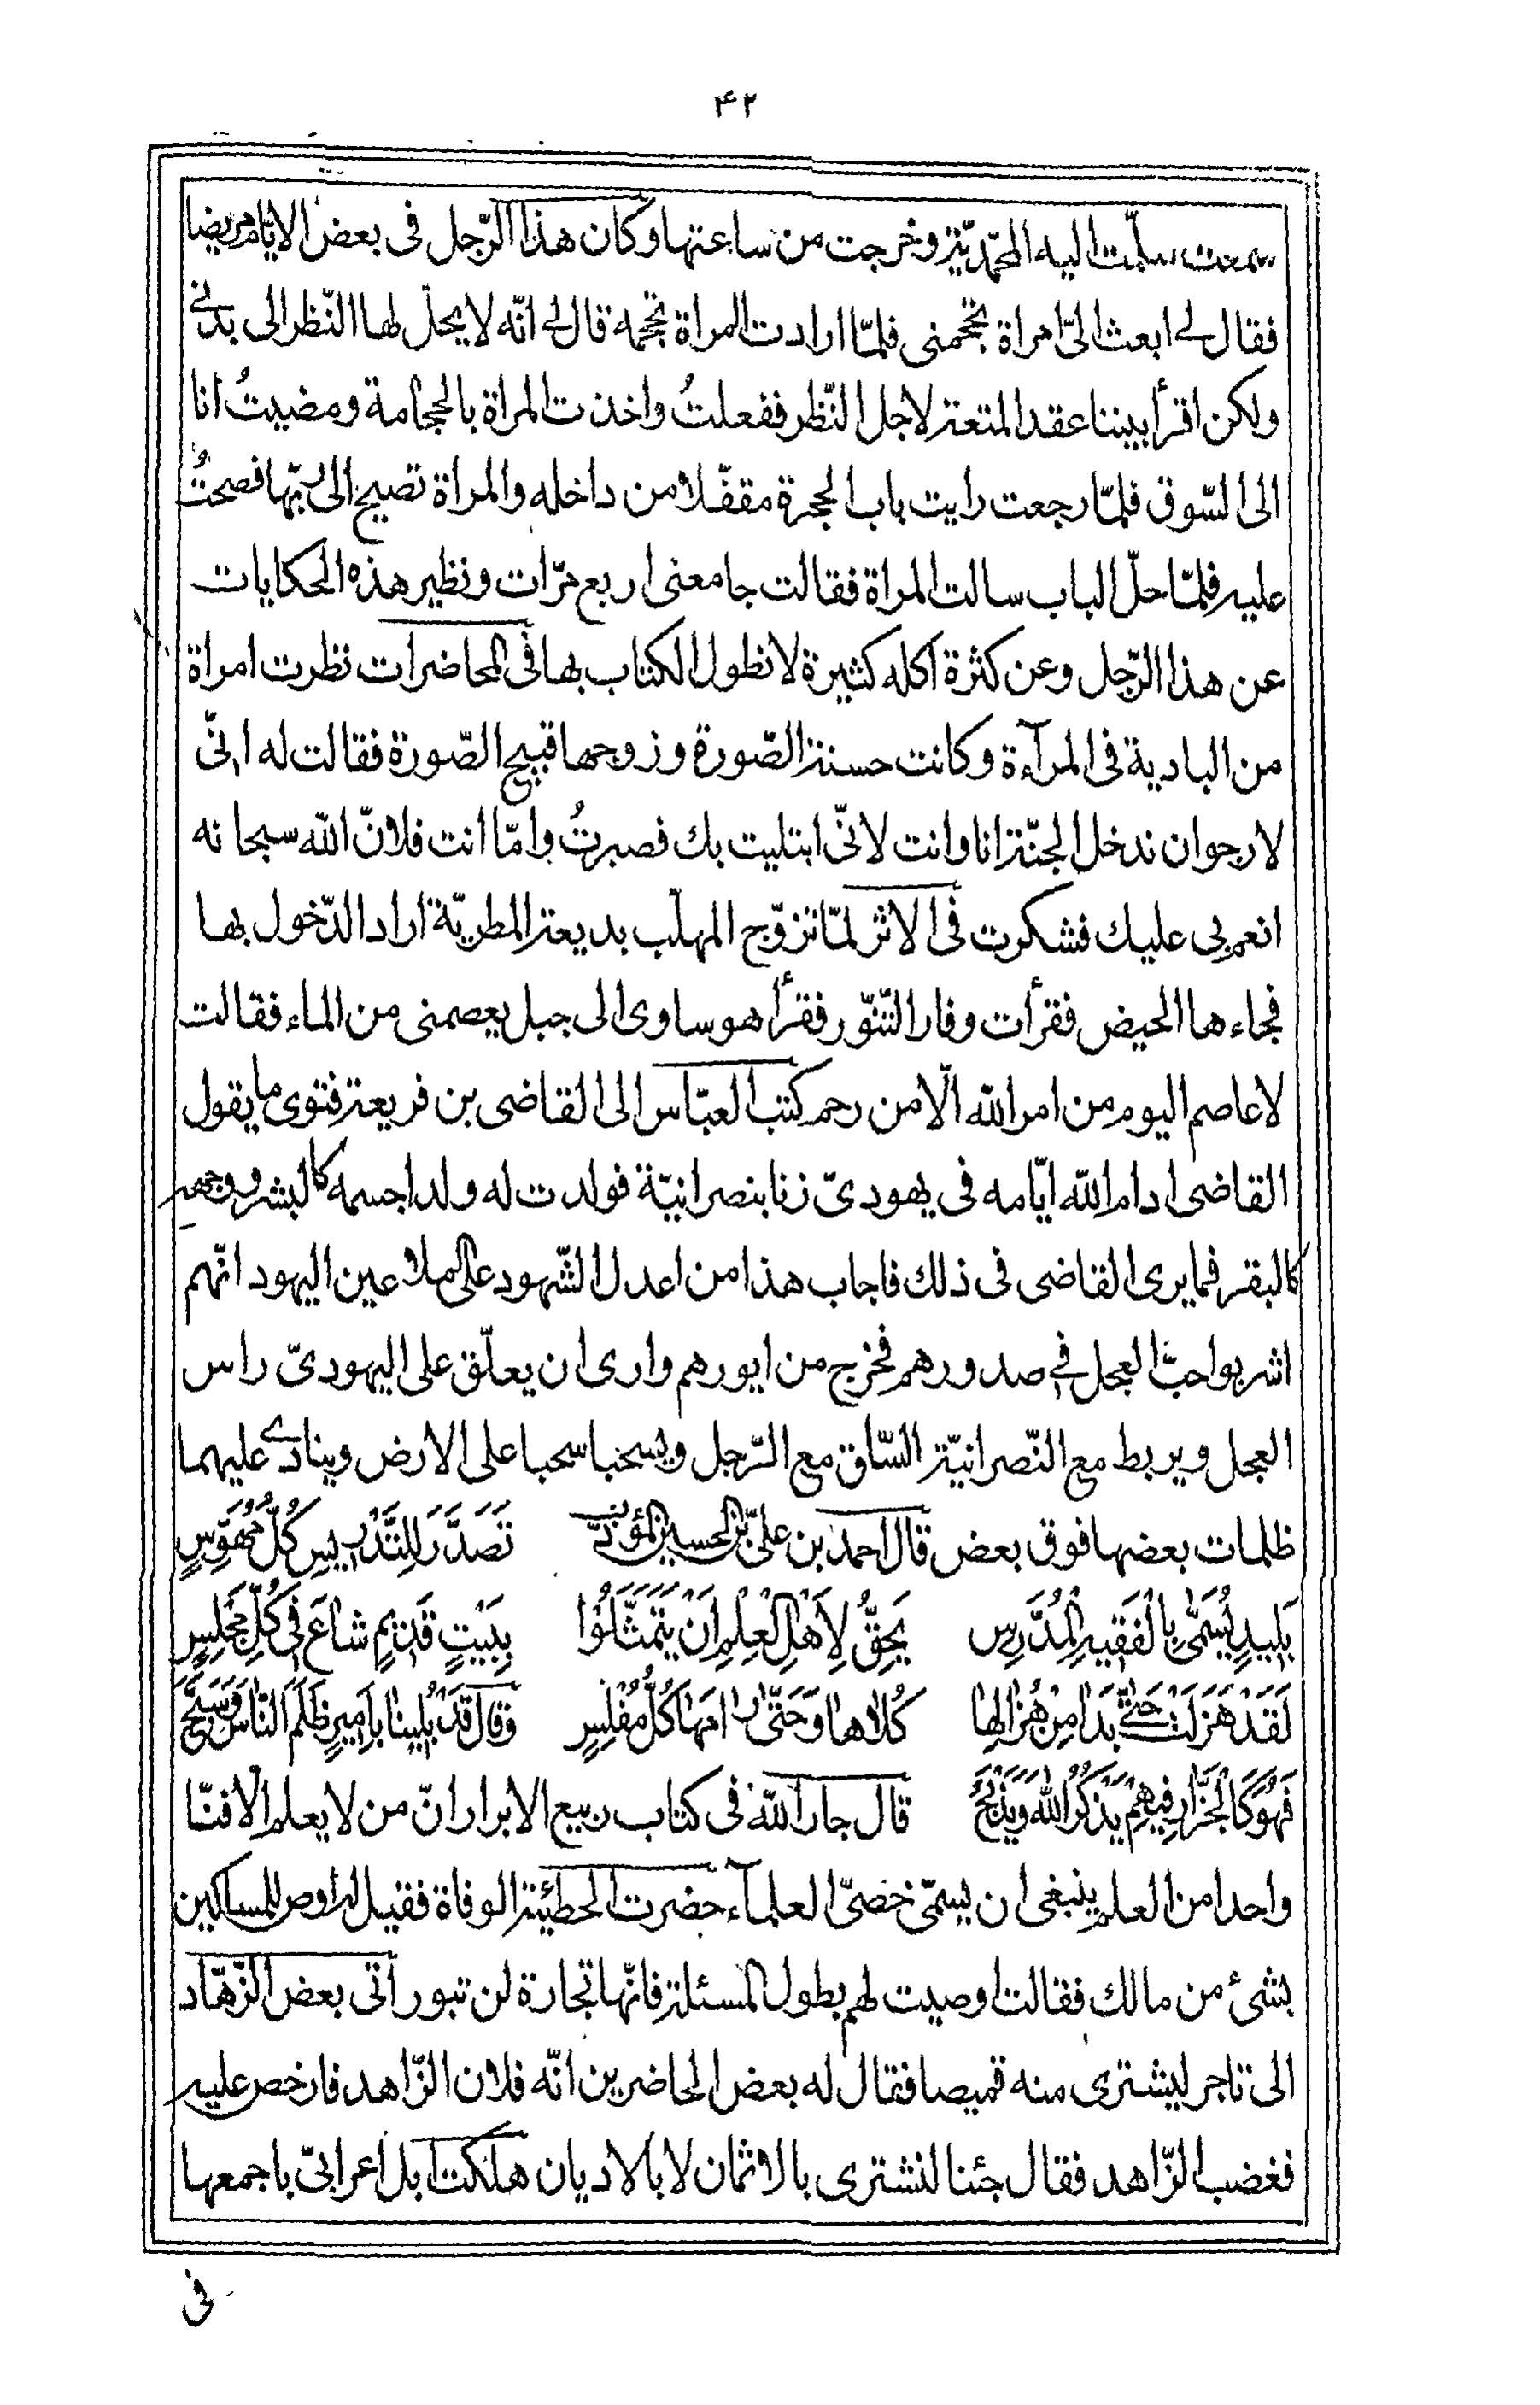 ۴۲
سمعت سلّمت اليه المحمّديّة وخرجت من ساعتها وكان هذا الرّجل فى بعض الايّام مريضا
فقال لى ابعث الىّ امراة تحجمنى فلمّا ارادت المراة تحجمه قال لى انّه لا يحلّ لها النّظر الى بدنى
ولكن اقرأ بيننا عقد المتعة لاجل النّظر ففعلتُ واخذت المراة بالحجامة ومضيتُ انا
الى السّوق فلمّا رجعت رايت باب الحجرة مقفّلا من داخله والمراة تصيح الى ربّها فصحتُ
عليه فلمّا حلّ الباب سالت المراة فقالت جامعنى اربع مرّات ونظير هذه الحكايات
عن هذا الرّجل وعن كثرة اكله كثيرة لا نطول الكتاب بها فى المحاضرات نظرت امراة
من البادية فى المرآءة وكانت حسنة الصّورة وزوجها قبيح الصّورة فقالت له انّى
لارجوان ندخل الجنّة انا وانت لانّى ابتليت بك فصبرتُ وامّا انت فلانّ اللّه سبحانه
انعم بى عليك فشكرت فى الاثر لمّا تزوّج المهلّب بديعة المطريّة اراد الدّخول بها
فجاءها الحيض فقرأت وفار التّنّور فقرأ هو ساوى الى جبل يعصمنى من الماء فقالت
لا عاصم اليوم من امر اللّه الّا من رحم كتب العبّاس الى القاضى بن قريعة فتوى ما يقول
القاضى ادام اللّه ايّامه فى يهودىّ زنا بنصرانيّة فولدت له ولدا جسمه كالبشر ووجهه
كالبقر فما يرى القاضى فى ذلك فاجاب هذا من اعدل الشّهود على ملاعين اليهود انّهم
اشربوا حبّ العجل فى صدورهم فخرج من ايورهم وارى ان يعلّق على اليهودىّ راس
العجل ويربط مع النّصرانيّة السّاق مع الرّجل ويسحبا سحبا على الارض وينادى عليهما
ظلمات بعضها فوق بعض قال احمد بن علىّ بن الحسين المؤدّب تَصَدَّرَ لِلتَّدْرِيسِ كُلُّ مُهَوِّسٍ
بَلِيدٍ يُسَمَّى بِالْفَقِيهِ الْمُدَرِّسِ يَحِقُّ لِاَهْلِ الْعِلْمِ اَنْ يَتَمَثَّلُوا بِبَيْتٍ قَدِيمٍ شَاعَ فِى كُلِّ مَجْلِسٍ
لَقَدْ هَزَلَتْ حَتَّى بَدَا مِنْ هُزَالِهَا كُلَاهَا وَحَتَّى رَامَهَا كُلُّ مُفْلِسٍ وَقَالَ قَدْ بُلِينَا بِاَمِيرٍ ظَلَمَ النَّاسَ وَسَبَّحَ
فَهُوَ كَالْجَزَّارِ فِيهِمْ يَذْكُرُ اللّٰهَ وَيَذْبَحُ قال جار اللّه فى كتاب ربيع الابرار انّ من لا يعلم الّا فنّا
واحدا من العلم ينبغى ان يسمّى خصىّ العلمآء حضرت الحطيئة الوفاة فقيل له اوص للمساكين
بشئ من مالك فقالت اوصيت لهم بطول المسئلة فانّها تجارة لن تبور أتى بعض الزّهّاد
الى تاجر ليشترى منه قميصا فقال له بعض الحاضرين انّه فلان الزّاهد فارخص عليه
فغضب الزّاهد فقال جئنا لنشترى بالاثمان لا بالاديان هلكت ابل اعرابىّ باجمعها
فى